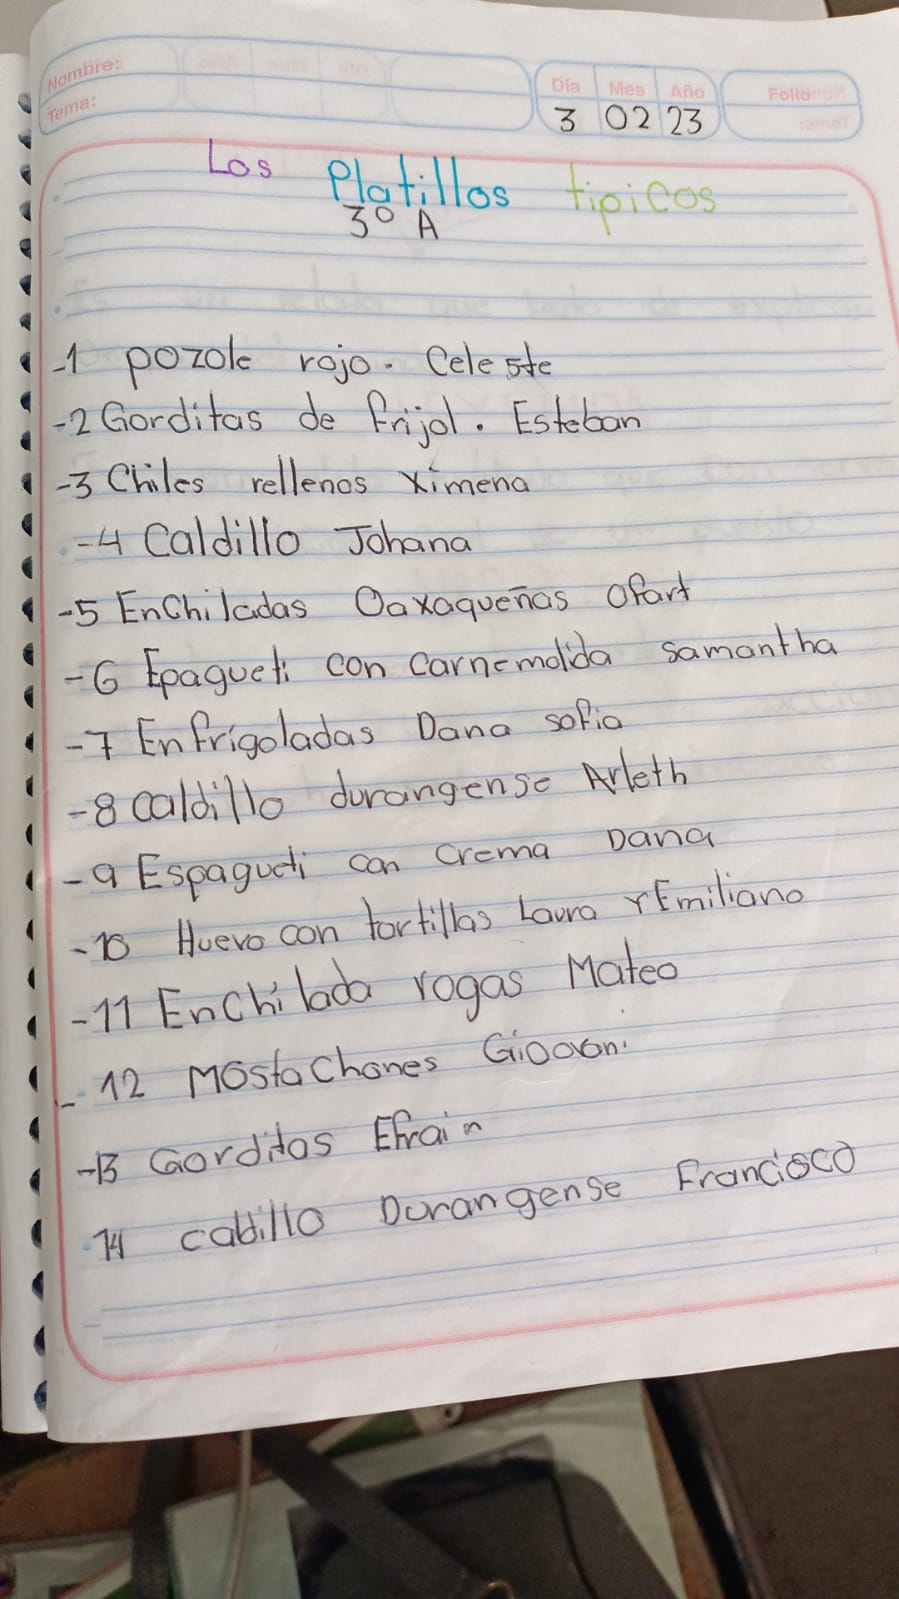 Nombre:
Tema:
Día Mes Año
3 02 23
Folio
Los Platillos tipicos
3° A
-1 pozole rojo. Celeste
-2 Gorditas de frijol. Esteban
-3 Chiles rellenos Ximena
-4 Caldillo Johana
-5 EnChiladas Oaxaqueñas Ofart
-6 Epagueti con Carnemolida samantha
-7 Enfrigoladas Dana sofia
-8 caldillo durangense Arleth
-9 Espagueti con Crema Dana
-10 Huevo con tortillas Laura YEmiliano
-11 EnChilada rogas Mateo
-12 MostaChones
-13 Gorditas Efrain
14 Durangense Francisco